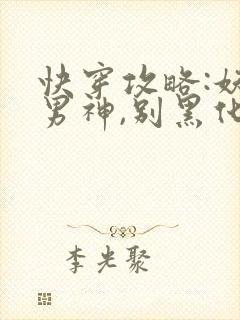 快穿攻略:妖
男神,别黑化
李光聚